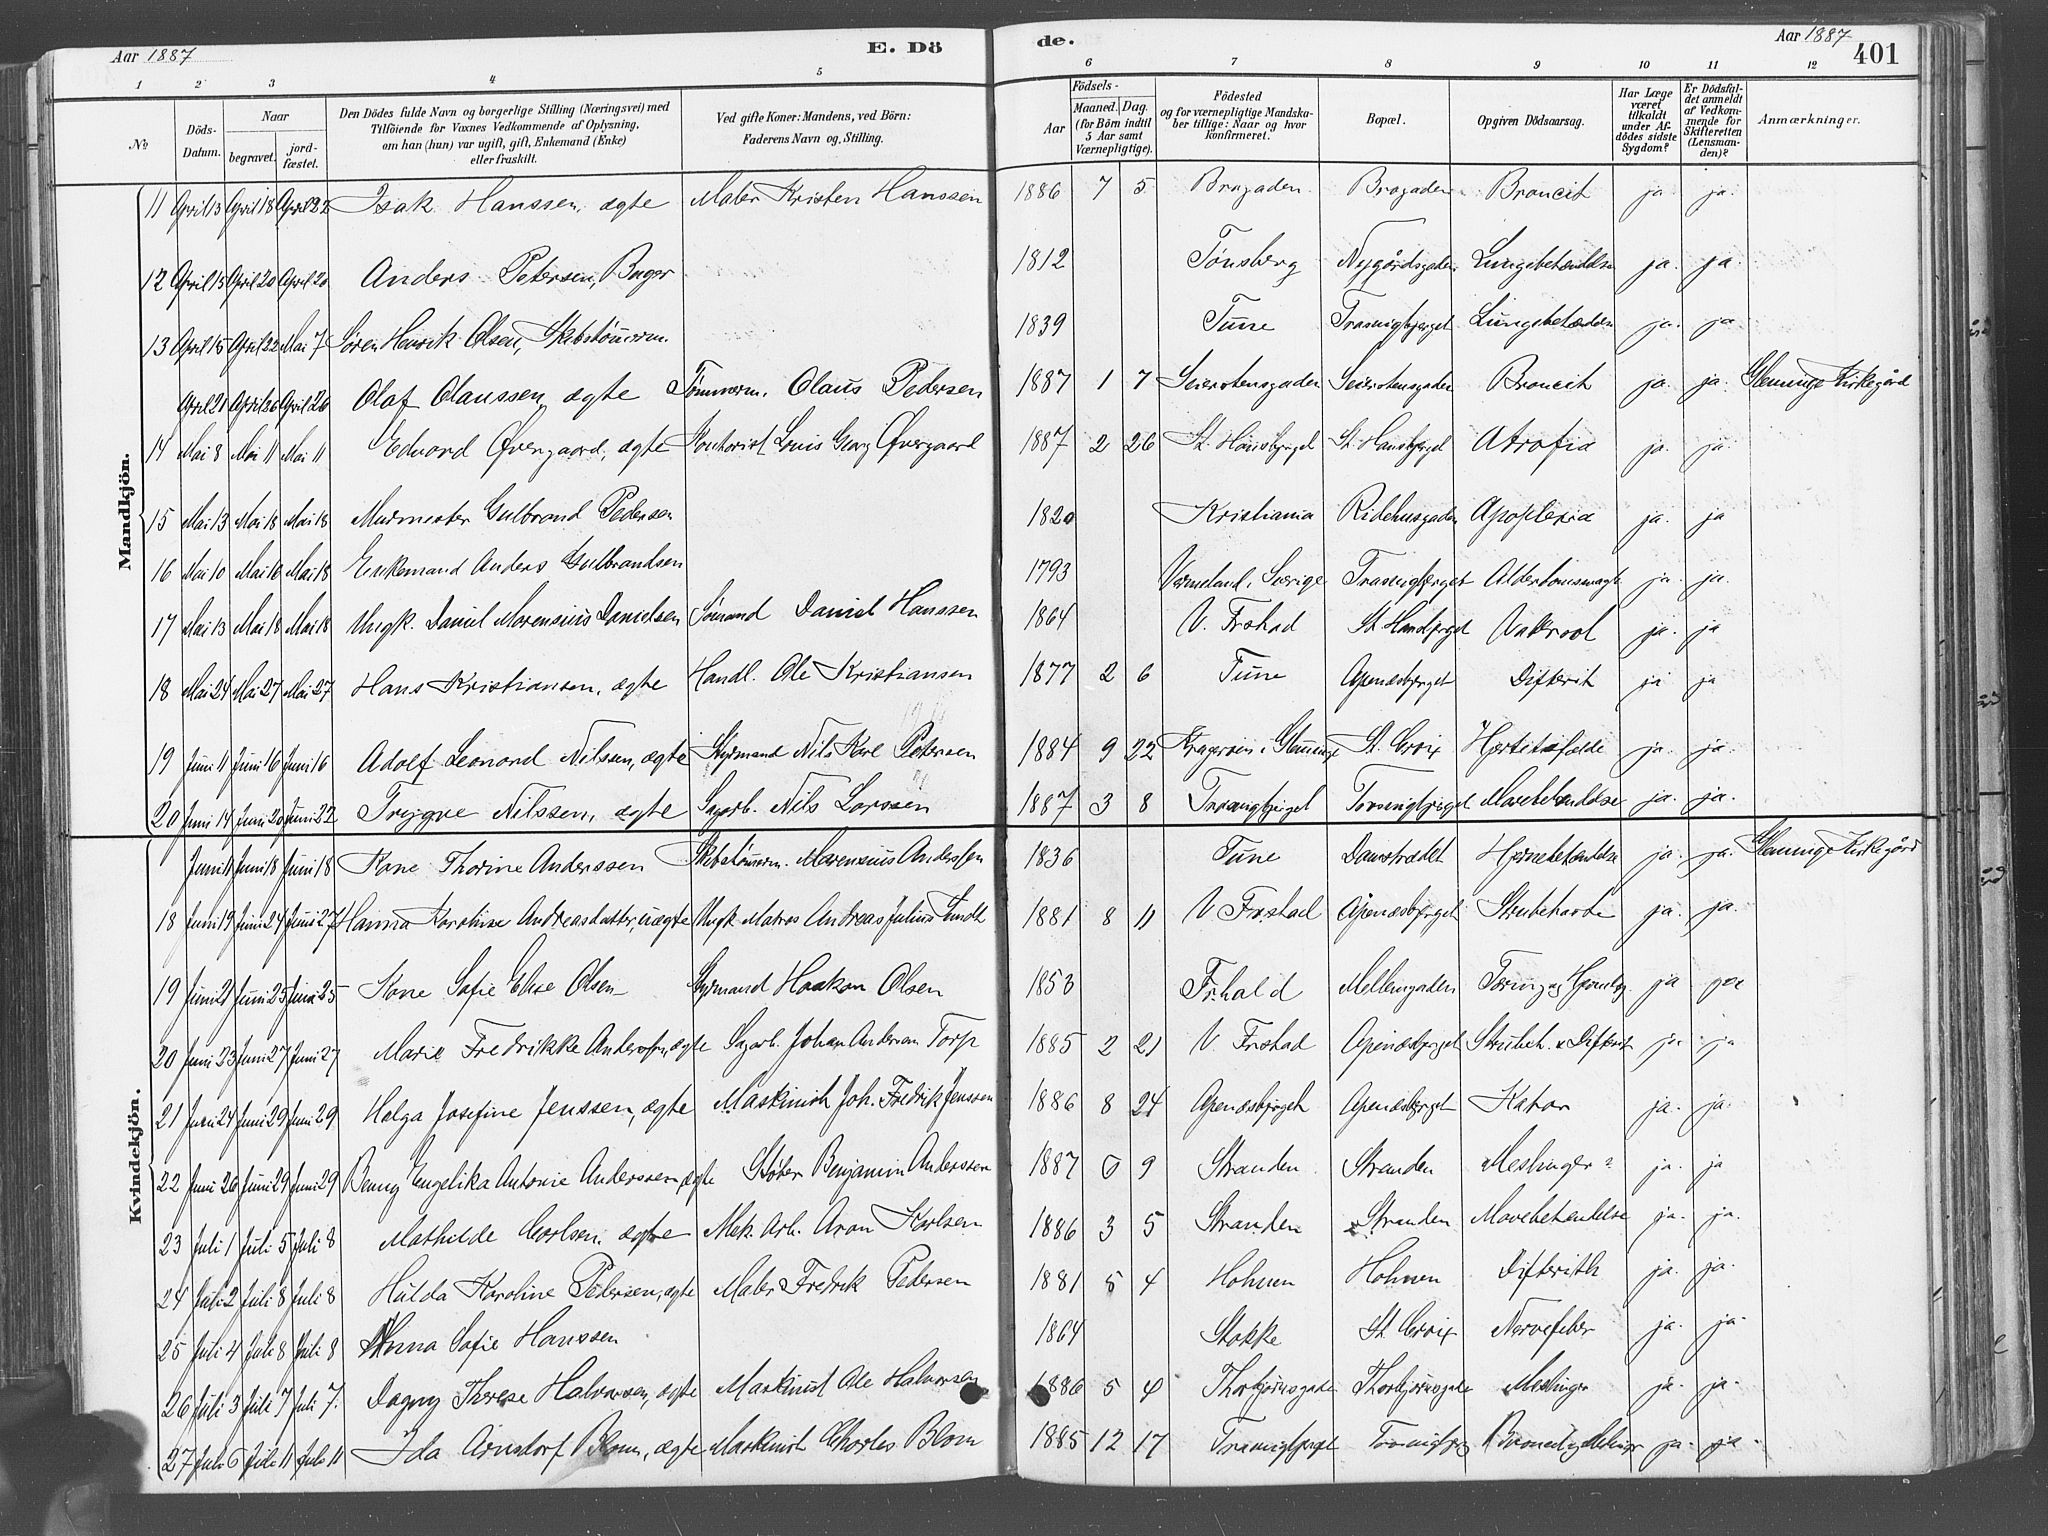 Aar 1887 E. Dö de. Aar 1887 401
1 2 3 4 5 6 7 8 9 10 11 12
№ Döds-Datum. Naar begravet. jord-fæstet. Den Dödes fulde Navn og borgerlige Stilling (Næringsvei) med Tilföiende for Voxnes Vedkommende af Oplysning, om han (hun) var ugift, gift, Enkemand (Enke) eller fraskilt. Ved gifte Koner: Mandens, ved Börn: Faderens Navn og Stilling. Aar Födsels- Maaned. Dag. (for Börn indtil 5 Aar samt Værnepligtige). Födested og for værnepligtige Mandskaber tillige: Naar og hvor konfirmeret. Bopæl. Opgiven Dödsaarsag. Har Læge været tilkaldt under Afdödes sidste Sygdom? Er Dödsfaldet anmeldt af Vedkommende for Skifteretten (Lensmanden)? Anmærkninger.
Mandkjön.
11 April 13 April 18 April 22 Isak Hanssen, ægte Maler Kristen Hanssen 1886 7 5 Brogaden Brogaden Broncit ja. ja.
12 April 15 April 20 April 20 Anders Petersen, Bager 1812 Tønsberg Nygårdsgaden Lungebetændelse ja. ja.
13 April 15 April 22 Mai 7 Søren Henrik Olsen, Skibstømmerm. 1839 Tune Trosvigbjerget Lungebetændelse ja. ja
April 21 April 26 April 26 Olaf Olaussen, ægte Tømmerm. Olaus Pedersen 1887 1 7 Seierstensgaden Seierstensgaden Broncit ja. ja. Glemminge Kirkegård
14 Mai 8 Mai 11 Mai 11 Edvard Øvergaard, ægte Kontorist Louis Georg Øvergaard 1887 2 26 St. Hansbjrget St. Hansbjrget Atrofia ja. ja.
15 Mai 13 Mai 18 Mai 18 Murmester Gulbrand Pedersen 1820 Kristiania Ridehusgaden Apoplexia ja. ja
16 Mai 10 Mai 16 Mai 18 Enkemand Anders Gulbrandsen 1793 Vermeland, Sverige Trosvigbjerget Alderdomssvagh. ja. ja.
17 Mai 13 Mai 18 Mai 18 Ungk. Daniel Marensius Danielsen Sømand Daniel Hanssen 1864 V. Frstad St. Hansbjrget ja. ja
18 Mai 24 Mai 27 Mai 27 Hans Kristiansen, ægte Handl. Ole Kristiansen 1877 2 6 Tune Apenæsbjerget Difterit ja ja
19 Juni 11 Juni 16 Juni 16 Adolf Leonard Nilssen, ægte Styrmand Nils Karl Petersen 1884 9 22 Kragerøen i Glemminge St. Croix ja. ja.
20 Juni 14 Juni 20 Juni 22 Trygve Nilssen, ægte Sagarb. Nils Larssen 1887 3 8 Trosvigbjrget Trosvigbjrget Mavebetændelse ja. ja.
Kvindekjön.
Juni 11 Juni 18 Juni 18 Kone Thorine Anderssen Skibstømmerm. Marensius Anderssen 1836 Tune Damstrædet Hjernebetændelse ja. ja. Glemminge Kirkegård
18 Juni 19 Juni 24 Juni 27 Hanna Karoline Andreasdatter, uægte Ungk. Matros Andreas Julius Lundt 1881 8 11 V. Frstad Apenæsbjerget Strubehoste ja. ja.
19 Juni 21 Juni 25 Juni 25 Kone Sofie Elise Olsen Styrmand Haakon Olsen 1853 Fr.hald Mellemgaden Tæring og ja ja
20 Juni 23 Juni 27 Juni 27 Marie Fredrikke Anderssen, ægte Sagarb. Johan Andersen Torp 1885 2 21 V. Frstad Apenæsbjerget Strubeh. & Difterit ja. ja
21 Juni 24 Juni 29 Juni 29 Helga Josefine Jenssen, ægte Maskinist Joh. Fredrik Jenssen 1886 8 24 Apenæsbjrget Apenæsbjrget Katar ja. ja.
22 Juni 26 Juni 29 Juni 29 Benny Engelika Antonie Anderssen, ægte Støber Benjamin Anderssen 1887 6 9 Stranden Stranden Meslinger ja. ja
23 Juli 1 Juli 5 Juli 8 Mathilde Carlsen, ægte Mek. Arb. Aron Karlsen 1886 3 5 Stranden Stranden Mavebetændelse ja. ja.
24 Juli 2 Juli 8 Juli 8 Hulda Karoline Pedersen, ægte Maler Fredrik Pedersen 1881 5 4 Holmen Holmen Difterith ja. ja.
25 Juli 4 Juli 8 Juli 8 Anna Sofie Hanssen 1864 Stokke St. Croix Nervefeber ja. ja.
26 Juli 3 Juli 7 Juli 7. Dagny Therese Halvorsen, ægte Maskinist Ole Halvorsen 1886 5 4 Thorbjørnsgade Thorbjørnsgade Meslinger ja. ja.
27 Juli 6 Juli 11 Juli 11 Ida Arnsdorf Blom, ægte Maskinist Charles Blom 1885 12 17 Trosvigbjrget Trosvigbjrg ja. ja.